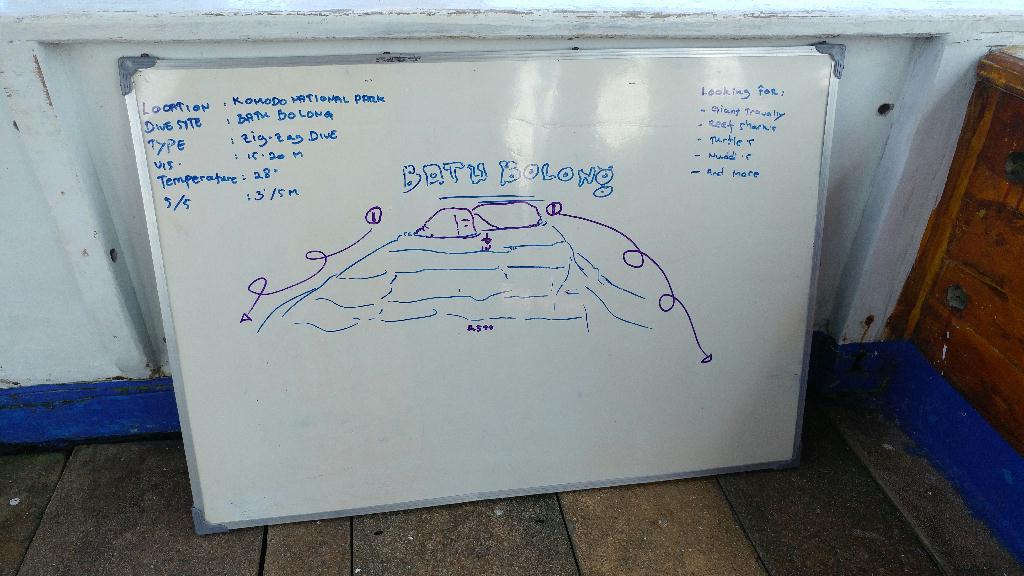 LOCATION : KOMODO NATIONAL PARK
DIVE SITE : BATU BOLONG
TYPE : Zig-Zag DIVE
VIS. : 15-20 M
Temperature : 28°
S/S : 3'/5M
Looking For:
- Giant Travally
- Reef Sharks
- Turtle's
- Nuddi's
- And more
BATU BOLONG
1
1